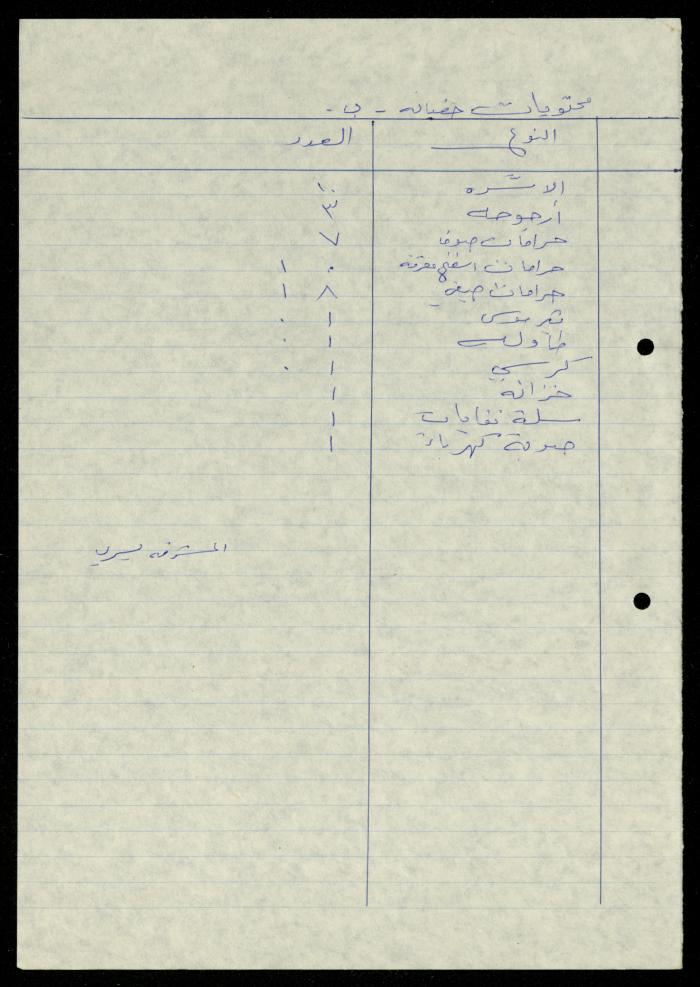 محتويات حضانه - ب -
النوع العدد
الاسّره ١٠
أرجوحه ٣
حرامات صوف ٧
حرامات اسفنج مفرقه ١٠
حرامات صيفي ١٨
ثرموس ١
طاوله ١
كرسي ١
خزانه ١
سلة نفايات ١
صوبة كهرباء ١
المشرفه يسرى